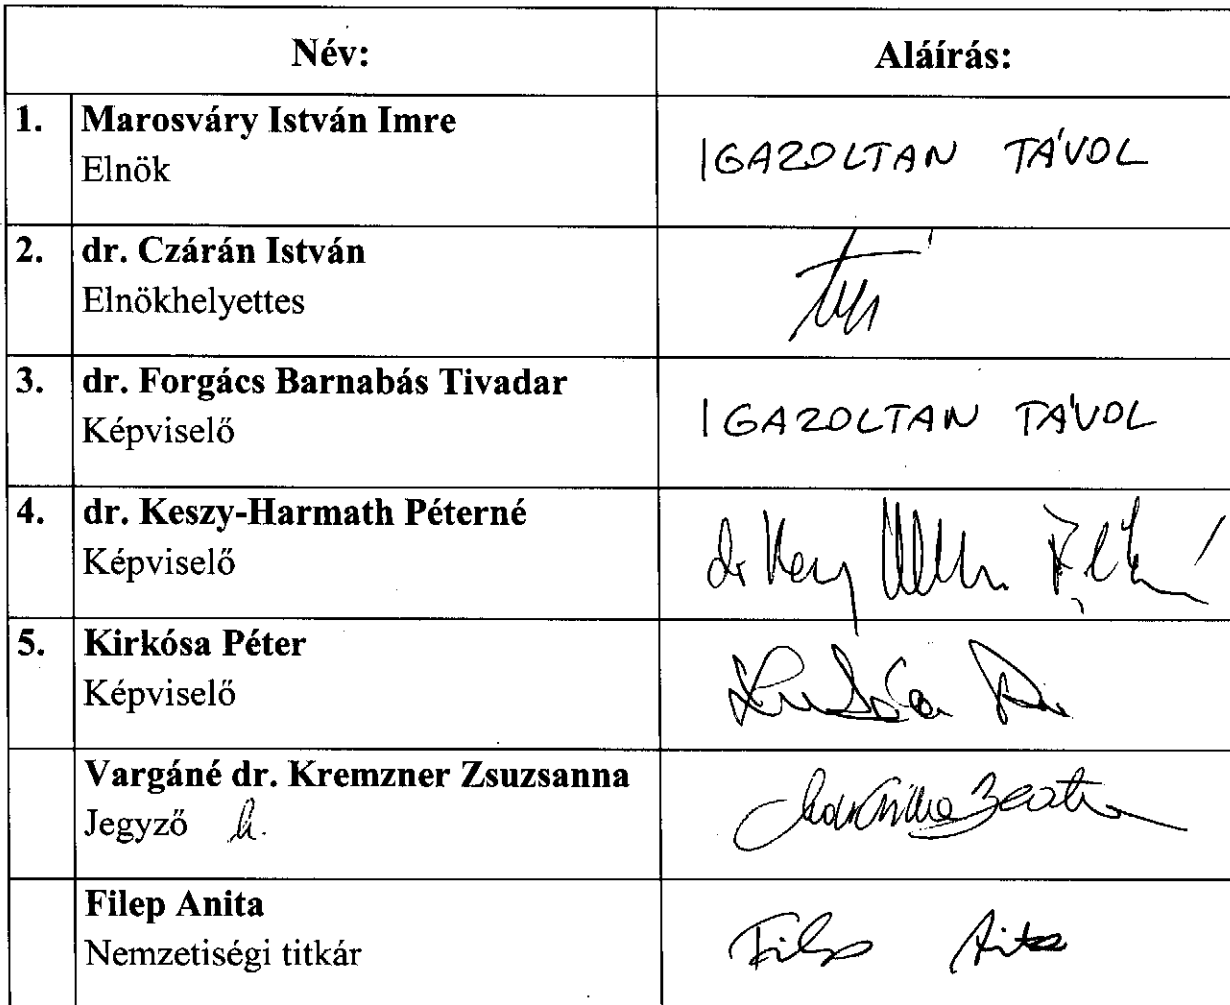 Név: Aláírás:
1. Marosváry István Imre
Elnök
IGAZOLTAN TÁVOL
2. dr. Czárán István
Elnökhelyettes
3. dr. Forgács Barnabás Tivadar
Képviselő
IGAZOLTAN TÁVOL
4. dr. Keszy-Harmath Péterné
Képviselő
dr
5. Kirkósa Péter
Képviselő
Vargáné dr. Kremzner Zsuzsanna
Jegyző h.
Filep Anita
Nemzetiségi titkár
Filep Anita